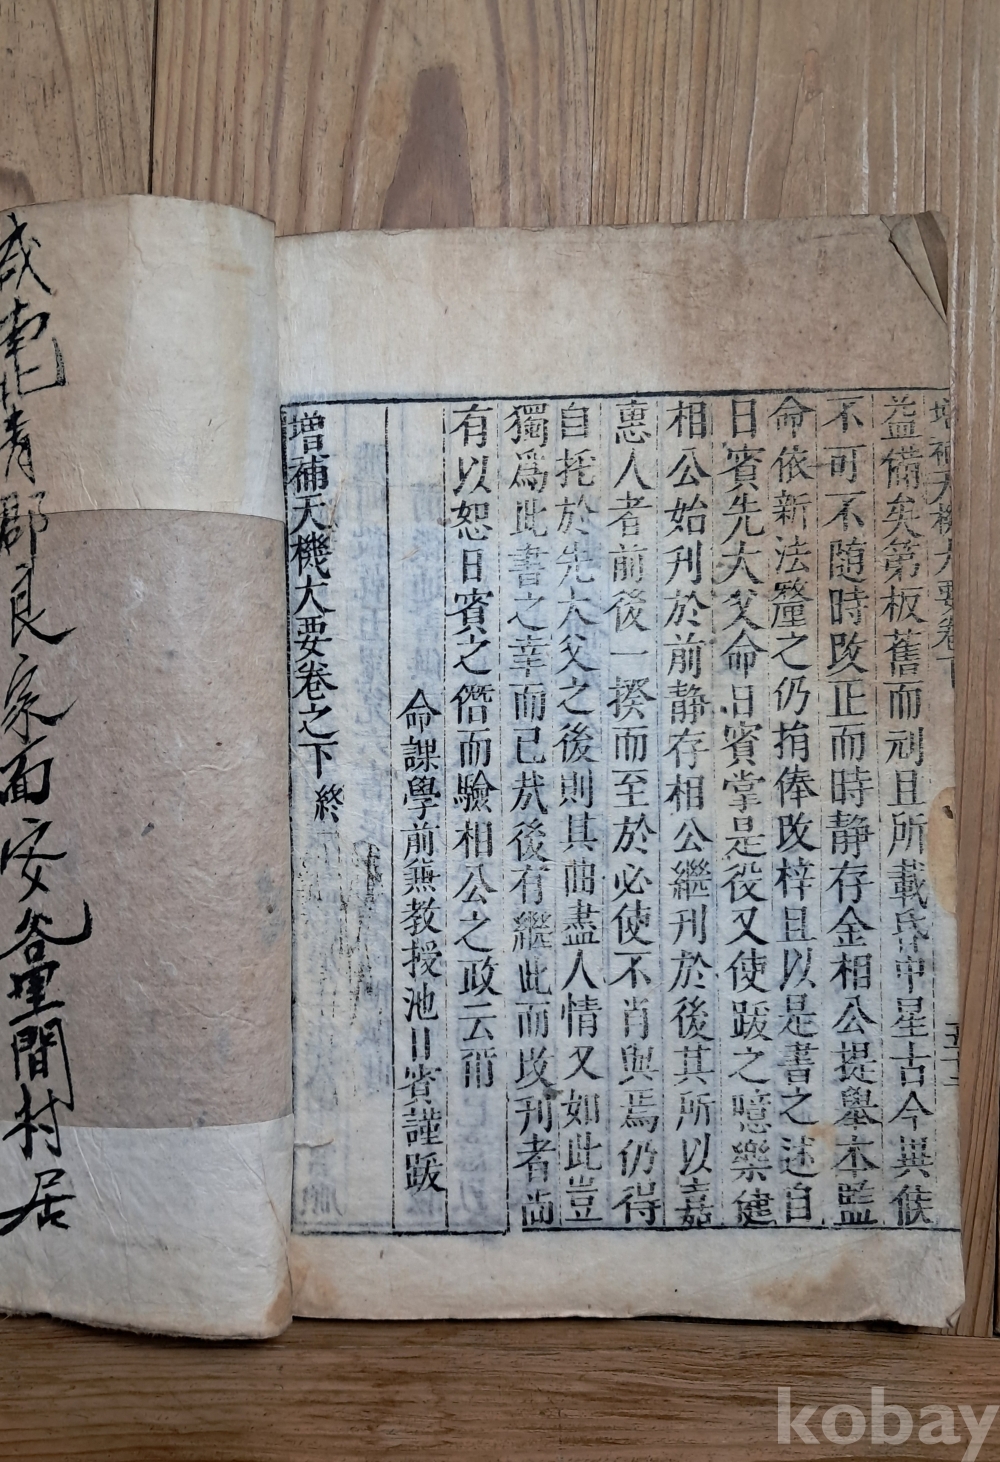 增補天機大要卷下
益備矣第板舊而刓且所載昏中星古今異候
不可不隨時改正而時靜存金相公提擧本監
命依新法釐之仍捐俸改梓且以是書之述自
日賓先大父命日賓掌是役又使跋之噫樂健
相公始刊於前靜存相公繼刊於後其所以嘉
惠人者前後一揆而至於必使不肖與焉仍得
自托於先大父之後則其曲盡人情又如此豈
獨爲此書之幸而已㢤後有繼此而改刊者尙
有以恕日賓之僭而驗相公之政云爾
命課學前兼敎授池日賓謹跋
增補天機大要卷之下 終
咸南北靑郡良家面安谷里間村居
kobay